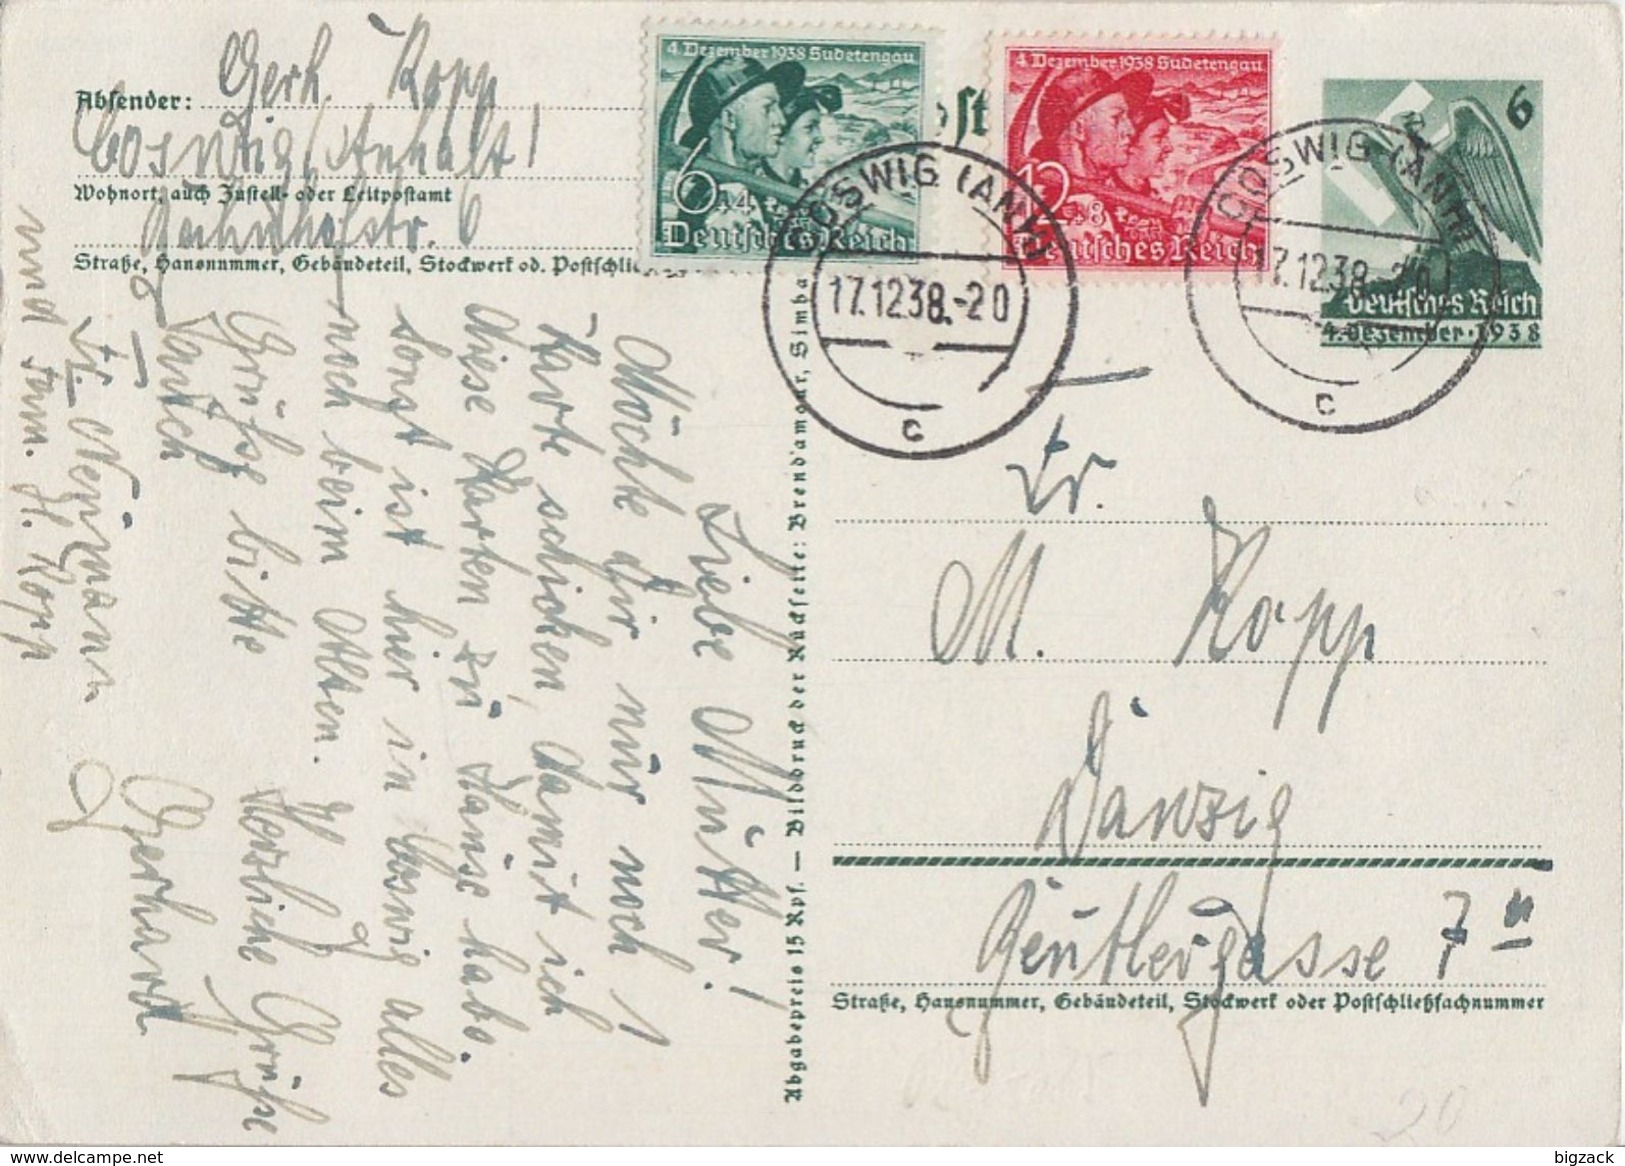 Absender: Gerh. Kopp
Coswig/Anhalt
Wohnort, auch Zustell- oder Leitpostamt
Bahnhofstr. 6
Straße, Hausnummer, Gebäudeteil, Stockwerk od. Postschli
4. Dezember 1938 Sudetengau
6+4
Deutsches Reich
4. Dezember 1938 Sudetengau
12+8
Deutsches Reich
6
Deutsches Reich
4. Dezember · 1938
COSWIG (ANH)
17.12.38.-20
c
COSWIG (ANH)
17.12.38.-20
c
Liebe Mutter!
Möchte dir nur noch 1
Karte schicken, damit ich
diese Karten zu Hause habe.
Sonst ist hier in Coswig alles
noch beim Alten. Herzliche Grüße
Grüße bitte
auch
Gerhard
Fr. Neumann
und Fam. H. Kopp
Abgabepreis 15 Rpf. — Bilddruck der Rückseite: Brend'amour, Simha
Fr.
M. Kopp
Danzig
Beutlergasse 7
Straße, Hausnummer, Gebäudeteil, Stockwerk oder Postschließfachnummer
20
delcampe.net
bigzack